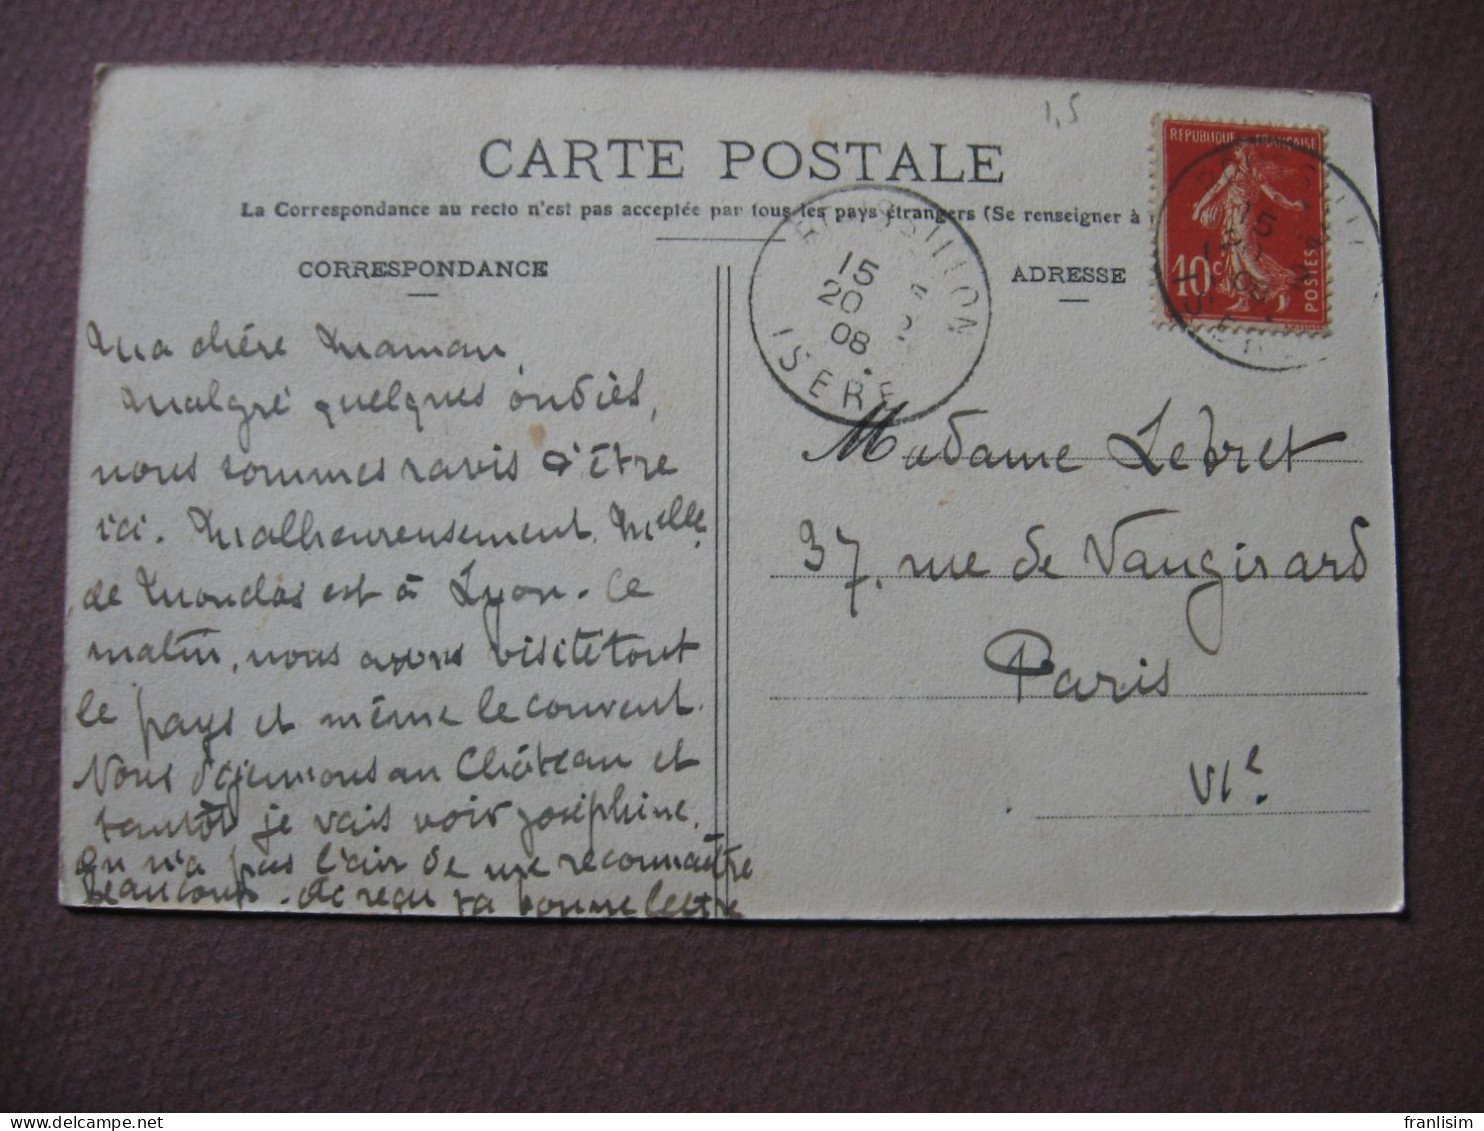 1,5
CARTE POSTALE
La Correspondance au recto n'est pas acceptée par tous les pays étrangers (Se renseigner à
CORRESPONDANCE
ADRESSE
REPUBLIQUE FRANÇAISE
10c
POSTES
ROUSSILLON
15
20
08
ISERE
Ma chère Maman,
Malgré quelques ondées,
nous sommes ravis d'être
ici. Malheureusement Melle
de est à Lyon. Ce
matin, nous avons visité tout
le pays et même le couvent.
Nous déjeunons au Château et
tantôt je vais voir Joséphine.
On n'a pas l'air de me reconnaître
beaucoup. reçu ta bonne lettre
Madame Lebret
37, rue de Vaugirard
Paris
VIe.
www.delcampe.net
franlisim